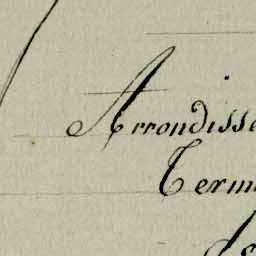 Arrondisse
Term
de